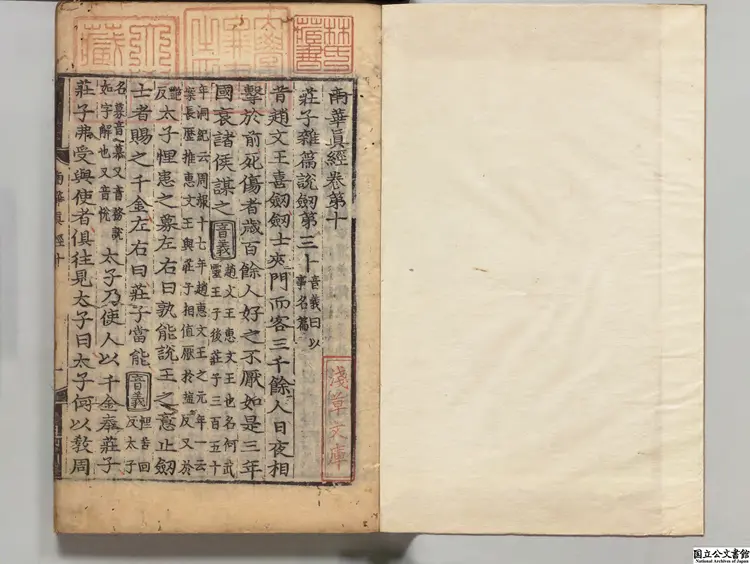 南華真經卷第十
莊子雜篇說劒第三十音義曰以事名篇
昔趙文王喜劒劒士夾門而客三千餘人日夜相
擊於前死傷者歲百餘人好之不厭如是三年
國衰諸侯謀之音義趙文王惠文王也名何武靈王子後莊子三百五十
年洞紀云周赧十七年趙惠文王之元年一云
案長歷推惠文王與莊子相值厭於塩反又於
艷反太子悝患之募左右曰孰能說王之意止劒
士者賜之千金左右曰莊子當能音義悝苦回反太子
名募音慕又書務說如字解也又音悅太子乃使人以千金奉莊子
莊子弗受與使者俱往見太子曰太子何以教周
南華真經十
林氏藏書
淺草文庫
国立公文書館
National Archives of Japan